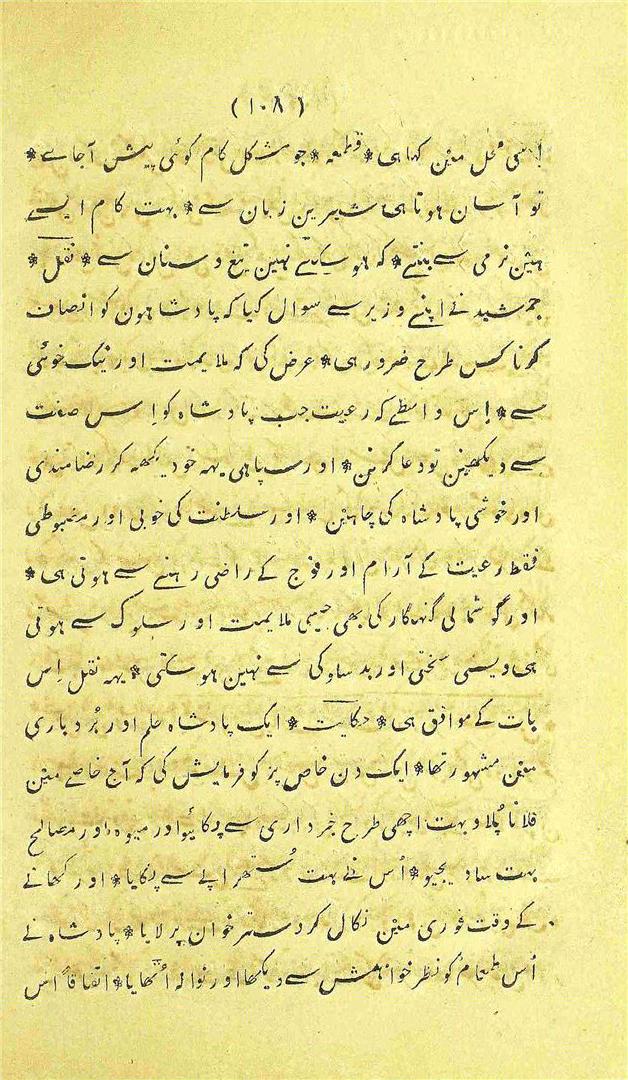 (۱۰۸)
اِسی محل مین کہا ہی * قطعہ * جو مشکل کام کوئی پیش آجاے *
تو آسان ہوتا ہی شیرین زبان سے * بہت کام ایسے
ہین نرمی سے بنتے * کہ ہو سکتے نہین تیغ و سنان سے * نقل *
جمشید نے اپنے وزیر سے سوال کیا کہ پادشاہون کو انصاف
کرنا کس طرح ضرور ہی * عرض کی کہ ملایمت اور نیک خوئی
سے * اِس واسطے کہ رعیت جب پادشاہ کو اِس صفت
سے دیکھین تو دعا کرین * اور سپاہی یہہ خو دیکھہ کر رضامندی
اور خوشی پادشاہ کی چاہین * اور سلطنت کی خوبی اور مضبوطی
فقط رعیت کے آرام اور فوج کے راضی رہنے سے ہوتی ہی *
اور گوشمالی گنہگار کی بھی جیسی ملایمت اور سلوک سے ہوتی
ہی ویسی سختی اور بدسلوکی سے نہین ہو سکتی * یہہ نقل اِس
بات کے موافق ہی * حکایت * ایک پادشاہ حلم اور بُردباری
مین مشہور تھا * ایک دن خاص پز کو فرمایش کی کہ آج خاصے مین
فلانا پُلاو بہت اچھی طرح خبرداری سے پکائیو اور میوہ اور مصالح
بہت سا دیجیو * اُس نے بہت سُتھراپے سے پکایا * اور کھانے
کے وقت غوری مین نکال کر دسترخوان پر لایا * پادشاہ نے
اُس طعام کو نظر خواہش سے دیکھا اور نوالہ اُٹھایا * اتفاقاً اس